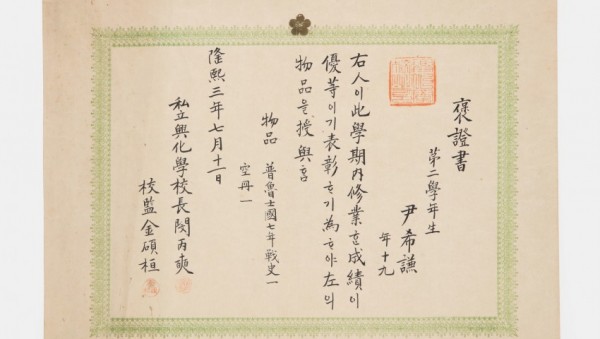 褒證書
第二學年生
尹希謙
年十九
右人이此學期內修業호成績이
優等이기表彰호기為호야左의
物品을授與홈
物品 普魯士國七年戰史一
空冊一
隆熙三年七月十一日
私立興化學校長閔丙奭
校監金碩桓